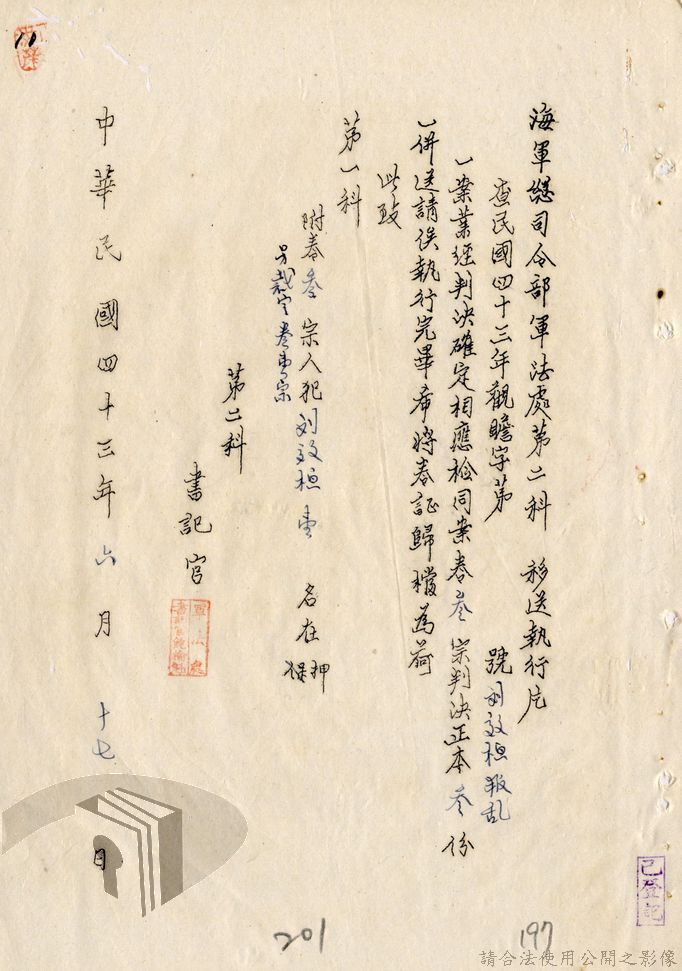 海軍總司令部軍法處第二科　移送執行片
查民國四十三年觀瞻字第　　號刘效桓叛乱
一案業經判決確定相應檢同案卷叁宗判決正本叁份
一併送請俟執行完畢希將卷証歸檔為荷
此致
第一科
附卷叁宗人犯刘效桓壹　名在押
保
另裁定卷壹宗
第二科
書記官
中華民國四十三年六月十七日
已登記
201
197
請合法使用公開之影像